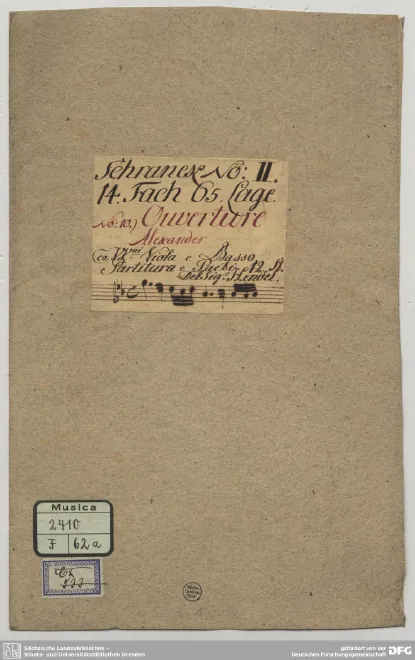 Schranck No: II.
14. Fach 65. Lage
No: 10.) Ouverture
Alexander.
co VV.ni Viola e Basso
Partitura e 12. St.
Del Sigr. Hendel.
Musica
2410
F 62a
Sächsische Landesbibliothek –
Staats- und Universitätsbibliothek Dresden
gefördert von der
Deutschen Forschungsgemeinschaft DFG